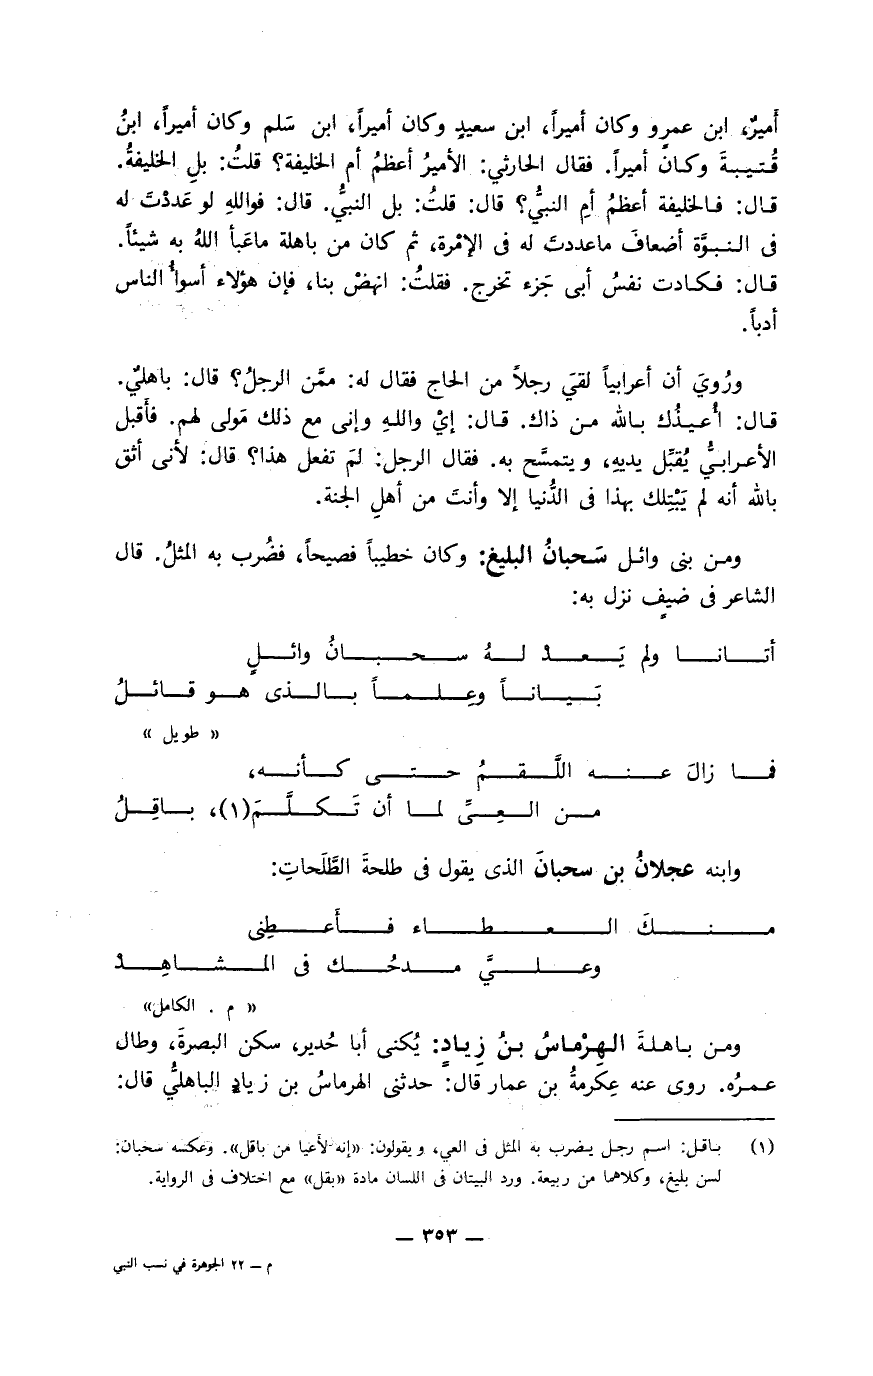 أميرٌ، ابن عمرٍو وكان أميراً، ابن سعيدٍ وكان أميراً، ابن سَلم وكان أميراً، ابنُ
قُتيبةَ وكان أميراً. فقال الحارثي: الأميرُ أعظمُ أم الخليفة؟ قلتُ: بلِ الخليفةُ.
قال: فالخليفة أعظمُ أمِ النبيُّ؟ قال: قلتُ: بل النبيُّ. قال: فواللهِ لو عَددْتَ له
فى النبوَّة أضعافَ ماعددتَ له فى الإمْرة، ثم كان من باهلة ماعَبأ اللهُ به شيئاً.
قال: فكادت نفسُ أبى جَزء تخرج. فقلتُ: انهضْ بنا، فإن هؤلاء أسوأُ الناس
أدباً.
ورُويَ أن أعرابياً لقيَ رجلاً من الحاج فقال له: ممَّن الرجلُ؟ قال: باهليٌ.
قال: أُعيذُك بالله من ذاك. قال: إيْ واللهِ وإنى مع ذلك مَولى لهم. فأقبل
الأعرابيُّ يُقبِّل يديهِ، ويتمسَّح به. فقال الرجل: لمَ تفعل هذا؟ قال: لأنى أثق
بالله أنه لم يَبْتِلك بهذا فى الدُّنيا إلا وأنتَ من أهلِ الجنة.
ومن بنى وائل سَحبانُ البليغ: وكان خطيباً فصيحاً، فضُرب به المثلُ. قال
الشاعر فى ضيفٍ نزل به:
أتانا ولم يَعدْ لهُ سحبانُ وائلٍ
بَياناً وعِلماً بالذى هو قائلُ
« طويل »
فما زالَ عنه اللَّقمُ حتى كأنه،
من العِيِّ لما أن تَكلَّمَ(١)، باقِلُ
وابنه عجلانُ بن سحبانَ الذى يقول فى طلحةَ الطَّلَحاتِ:
منكَ العطاء فأَعطِنى
وعليَّ مدحُك فى المشاهِدْ
« م . الكامل»
ومن باهلةَ الهِرْماسُ بنُ زِيادٍ: يُكنى أبا حُدير، سكن البصرةَ، وطال
عمرُه. روى عنه عِكرمةُ بن عمار قال: حدثنى الهرماسُ بن زيادٍ الباهليُّ قال:
(١) باقل: اسم رجل يضرب به المثل فى العي، ويقولون: «إنه لأعيا من باقل». وعكسه سحبان:
لسن بليغ، وكلاهما من ربيعة. ورد البيتان فى اللسان مادة «بقل» مع اختلاف فى الرواية.
— ٣٥٣ —
م — ٢٢ الجوهرة في نسب النبي